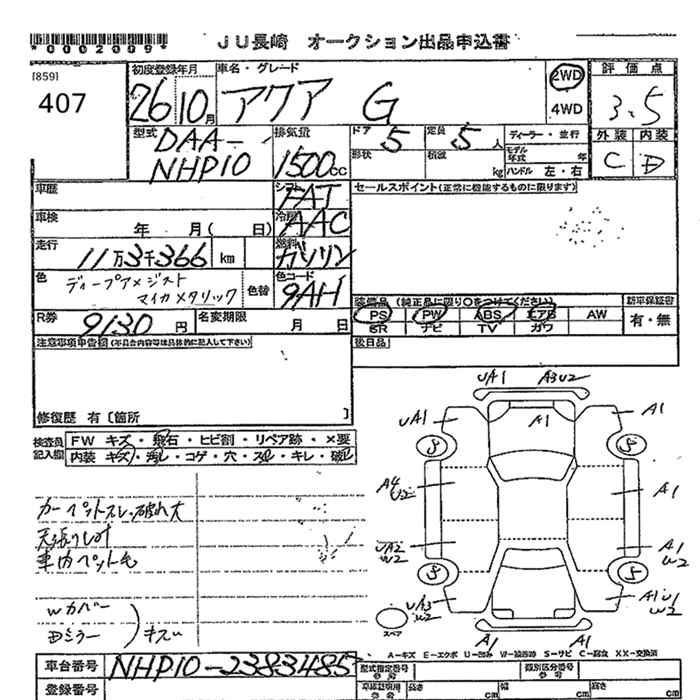 *0002009*
JU長崎 オークション出品申込書
[859]
407
初度登録年月 26 10月
車名・グレード アクア G
2WD
4WD
評価点 3.5
外装 内装
C D
型式 DAA-
NHP10
排気量 1500cc
ドア 5
定員 5人
形状
積載 kg
ディーラー・並行
モデル年式 年
ハンドル 左・右
車歴
シフト FAT
セールスポイント(正常に機能するものに限ります)
車検 年 月( 日)
冷房 AAC
走行 11万3千366 km
燃料 ガソリン
色 ディープアメジスト
マイカメタリック
色替
色コード 9AH
装備品(純正品に限り○をつけてください)
新車保証書
PS PW ABS エアB AW
SR ナビ TV カワ
有・無
R券 9130円
名変期限 月 日
注意事項申告欄(不具合内容等は具体的に記入して下さい)
後日品
修復歴 有〔箇所 〕
検査員記入欄
FW キズ・飛石・ヒビ割・リペア跡・×要
内装 キズ・汚れ・コゲ・穴・スレ・キレ・破れ
カーペットスレ、破れ大
天張りシミ
車内ペット毛
Wカバー
Dミラー
キズU
UA1 A3U2
UA1 A1 A1
5 5
A4
U2
A1
UA2
W2
A1
W2
5 5
UA3
W2
A1U1
W2
スペア
A1 A1
A-キズ E-エクボ U-凹み W-補修跡 S-サビ C-腐食 XX-交換済
車台番号 NHP10-2383485
型式指定番号
類別区分番号
登録番号
車庫証明用
長さ cm
幅 cm
高さ cm